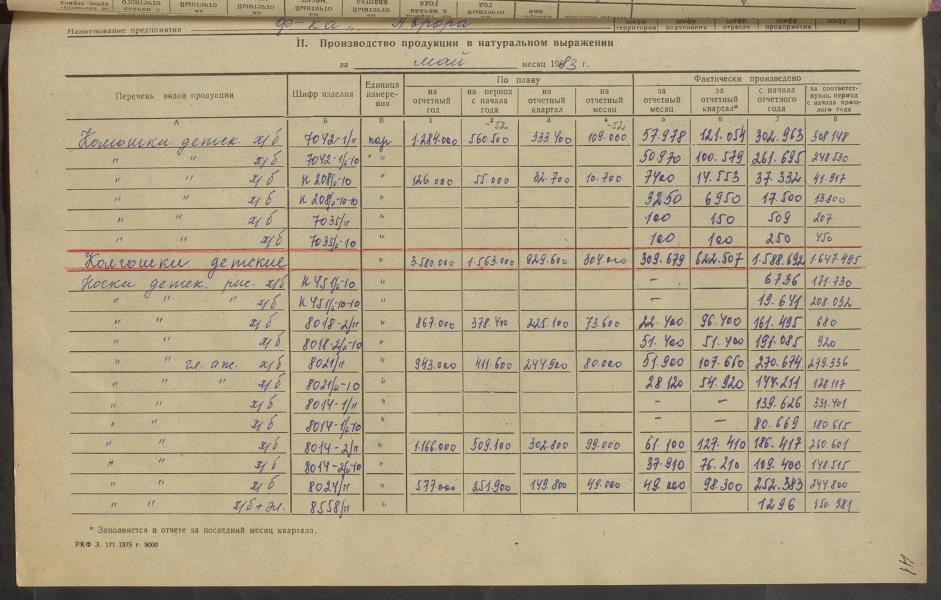 Наименование предприятия ф-ка „Аврора
шифр территории шифр шифр отрасли шифр предприятия
II. Производство продукции в натуральном выражении
за май месяц 1983 г.
Перечень видов продукции Шифр изделия Единица измерения По плану Фактически произведено
на отчетный год на период с начала года на отчетный квартал на отчетный месяц за отчетный месяц за отчетный квартал* с начала отчетного года за соответствующ. период с начала прошлого года
А Б В 1 2 3 4 5 6 7 8
-52 -52
Колготки детск. х/б 7042-1/11 пар 1.284.000 560.500 333.400 109.000 57.978 121.054 302.963 308.148
" " х/б 7042-1/0-10 " 50.970 100.579 261.695 248.530
" " х/б К 208/0-10 " 126.000 55.000 32.700 10.700 7400 14.553 37.332 41.917
" " х/б К 208/0-10-10 " 3250 6950 17.500 13800
" " х/б 7035/11 " 100 150 509 207
" " х/б 7035/0-10 " 100 100 250 450
Колготки детские " 3.580.000 1.563.000 929.600 304.000 309.679 622.507 1.588.692 1.647.495
Носки детск. рис. х/б К 451/0-10 " - 6736 171.730
" " " х/б К 451/0-10-10 " - 19.641 208.032
" " х/б 8018-2/11 " 867.000 378.400 225.100 73.600 22.400 96.400 161.495 680
" " х/б 8018-2/0-10 " 51.400 51.400 191.085 920
" " гл. ат. х/б 8021/11 " 943.000 411.600 244.900 80.000 51.900 107.660 270.674 279.336
" " " х/б 8021/0-10 " 28120 54.920 144.211 128.117
" " х/б 8014-1/11 " - - 139.626 331.401
" " х/б 8014-1/0-10 " - - 80.669 180.615
" " х/б 8014-2/11 " 1.166.000 509.100 302.800 99.000 61.100 127.410 186.417 260.601
" " х/б 8014-2/0-10 " 37.910 76.210 109.400 148.515
" " х/б 8024/11 " 577.000 251.900 149.800 49.000 49.000 98.300 252.383 244.800
" " х/б+эл. 8558/11 " 1296 150.981
* Заполняется в отчете за последний месяц квартала.
РКФ З. 171 1975 г. 5000
41